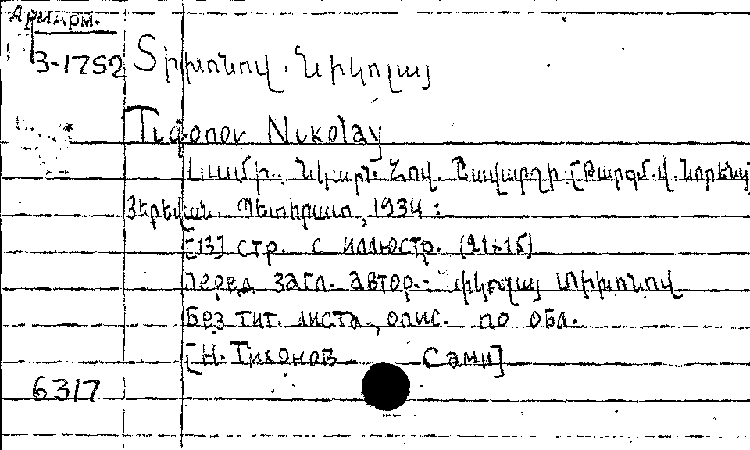 Армарм.
3-1752 Տիխոնով. Նիկոլայ
Tiqonov Nikolay
Սամի. Նկար. Հով. Շավարշի [Թարգմ. Վ. Նորենց
Յերեվան. Պետհրատ, 1934:
[13] стр. с иллюстр. (21×15)
Перед загл. автор.: Նիկոլայ Տիխոնով
Без тит. листа, опис. по обл.
[Н. Тихонов Сами]
6317